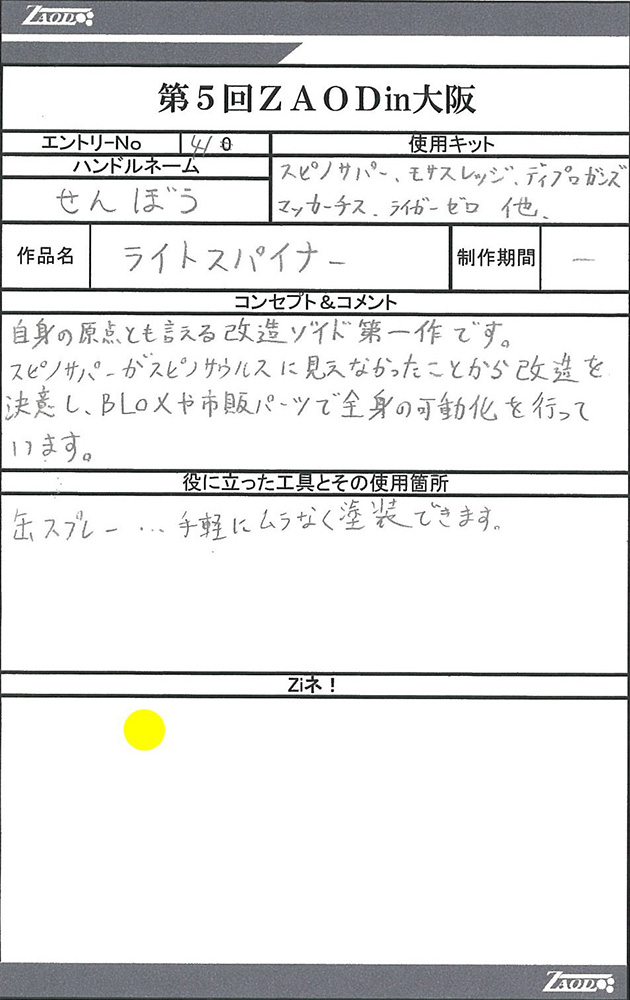 ZAOD
第5回ZAODin大阪
エントリーNo 410
使用キット
ハンドルネーム
せんぼう
スピノサパー、モサスレッジ、ディプロガンズ
マッカーチス、ライガーゼロ 他、
作品名 ライトスパイナー 制作期間 ―
コンセプト＆コメント
自身の原点とも言える改造ゾイド第一作です。
スピノサパーがスピノサウルスに見えなかったことから改造を
決意し、BLOXや市販パーツで全身の可動化を行って
います。
役に立った工具とその使用箇所
缶スプレー … 手軽にムラなく塗装できます。
Ziネ！
ZAOD